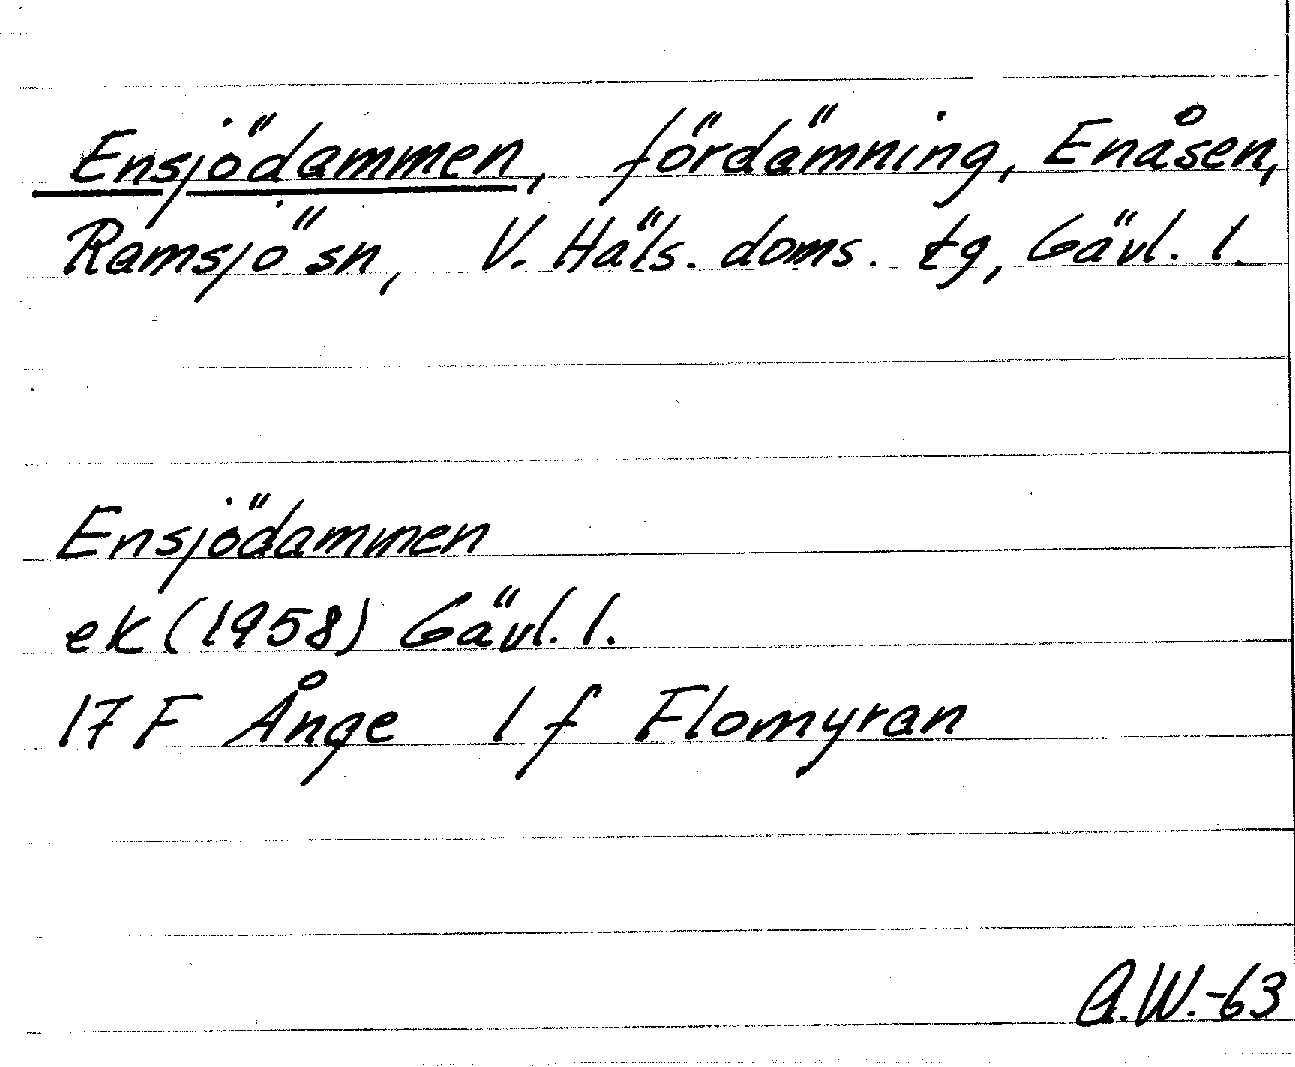 Ensjödammen, fördämning, Enåsen,
Ramsjö sn, V. Häls. doms. tg, Gävl. l.
Ensjödammen
ek (1958) Gävl. l.
17 F Ånge 1 f Flomyran
A.W.-63